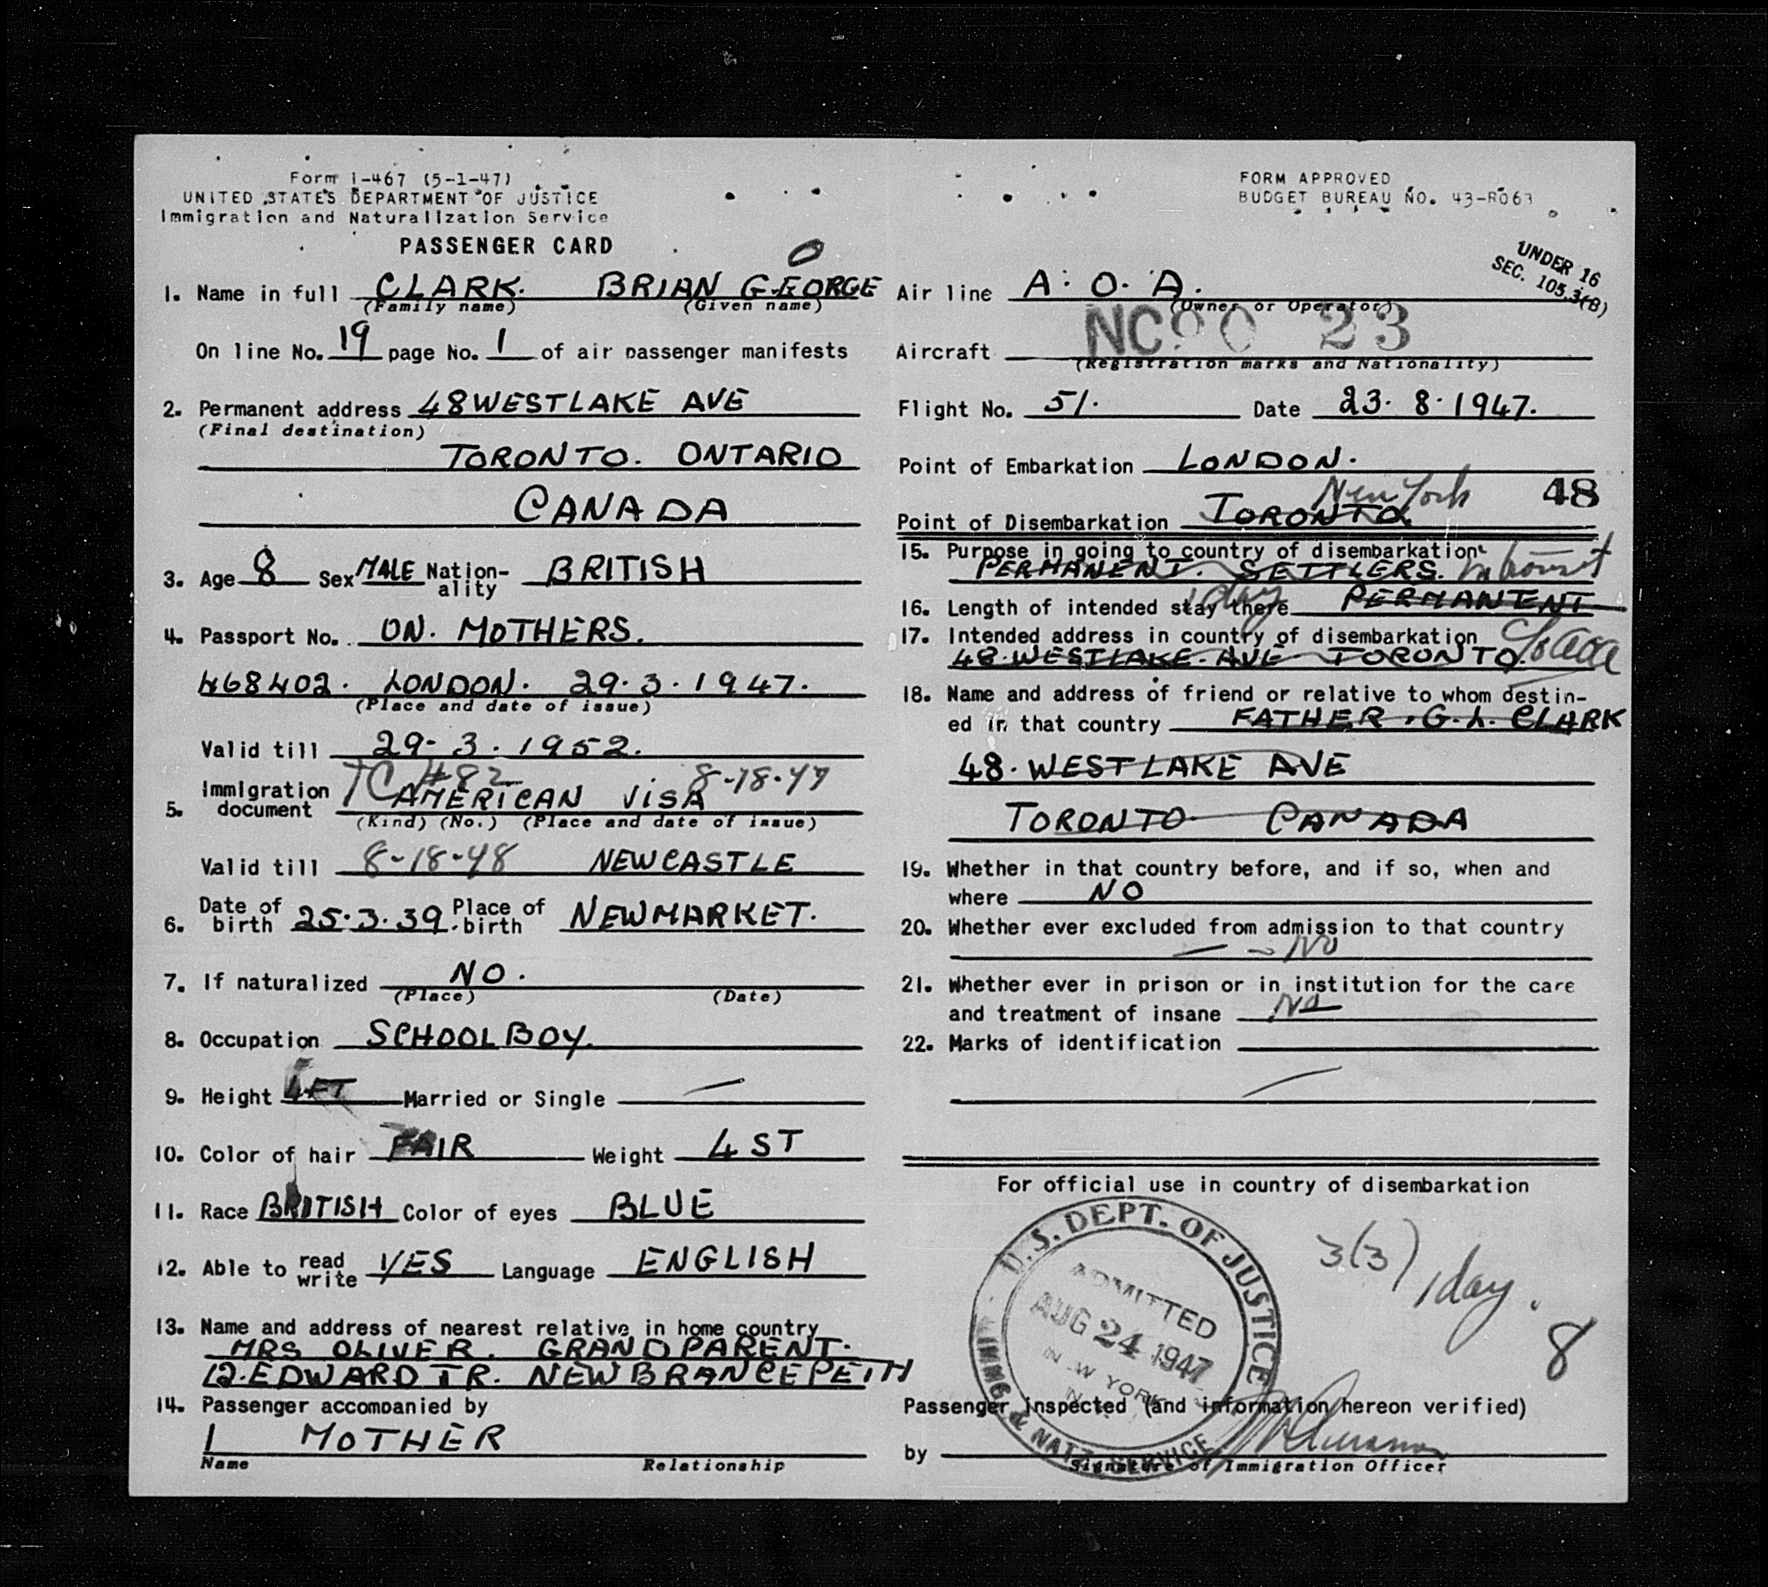 Form I-467 (5-1-47)
UNITED STATES DEPARTMENT OF JUSTICE
Immigration and Naturalization Service
PASSENGER CARD
1. Name in full CLARK. BRIAN GEORGE
(Family name) (Given name)
On line No. 19 page No. 1 of air passenger manifests
2. Permanent address 48 WESTLAKE AVE
(Final destination)
TORONTO. ONTARIO
CANADA
3. Age 8 Sex MALE Nation-ality BRITISH
4. Passport No. ON. MOTHERS.
468402. LONDON. 29.3.1947.
(Place and date of issue)
Valid till 29-3.1952.
TC #82 8-18-47
5. Immigration document AMERICAN VISA
(Kind) (No.) (Place and date of issue)
Valid till 8-18-48 NEWCASTLE
6. Date of birth 25.3.39. Place of birth NEWMARKET.
7. If naturalized NO.
(Place) (Date)
8. Occupation SCHOOLBOY.
9. Height 4FT Married or Single —
10. Color of hair FAIR Weight 4 ST
11. Race BRITISH Color of eyes BLUE
12. Able to read write YES Language ENGLISH
13. Name and address of nearest relative in home country
MRS OLIVER. GRANDPARENT.
12. EDWARD TR. NEWBRANCEPETH
14. Passenger accompanied by
1 MOTHER
Name Relationship
FORM APPROVED
BUDGET BUREAU NO. 43-R063
UNDER 16
SEC. 105.3(B)
Air line A. O. A.
(Owner or Operator)
Aircraft NC90 23
(Registration marks and Nationality)
Flight No. 51. Date 23. 8. 1947.
Point of Embarkation LONDON.
New York 48
Point of Disembarkation TORONTO.
15. Purpose in going to country of disembarkation
PERMANENT. SETTLERS. In transit
16. Length of intended stay there 1 day PERMANENT
17. Intended address in country of disembarkation
48. WESTLAKE. AVE TORONTO. c/o AOA
18. Name and address of friend or relative to whom destin-
ed in that country FATHER. G. L. CLARK
48. WESTLAKE AVE
TORONTO CANADA
19. Whether in that country before, and if so, when and
where NO
20. Whether ever excluded from admission to that country
— - No
21. Whether ever in prison or in institution for the care
and treatment of insane No
22. Marks of identification
—
For official use in country of disembarkation
U.S. DEPT. OF JUSTICE
IMMG. & NATZ. SERVICE
ADMITTED
AUG 24 1947
NEW YORK
N.Y.
3(3) 1 day.
8
Passenger inspected (and information hereon verified)
by
Signature of Immigration Officer